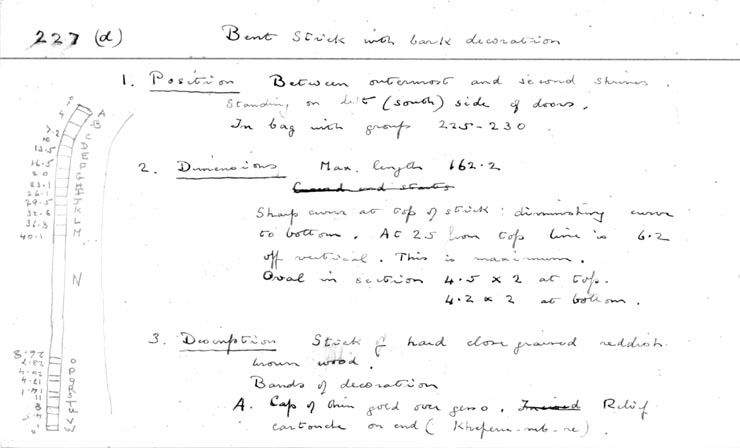 227 (d)
Bent Stick with bark decoration
1. Position Between outermost and second shrines.
Standing on left (south) side of doors.
In bag with groups 225-230
2. Dimensions Max. length 162.2
Sharp curve at top of stick: diminishing curve
to bottom. At 25 from top line is 6.2
off vertical. This is maximum.
Oval in section 4.5 x 2 at top.
4.2 x 2 at bottom.
3. Description Stick of hard close grained reddish
brown wood.
Bands of decoration
A. Cap of thin gold over gesso. Incised Relief
cartouche on end (Kheperu-neb-re).
A
B
C
D
E
F
G
H
J
K
L
M
N
O
P
Q
R
S
T
U
V
W
4
7.2
10
13.5
16.5
20
23.1
26.1
29.5
32.6
36.3
40.1